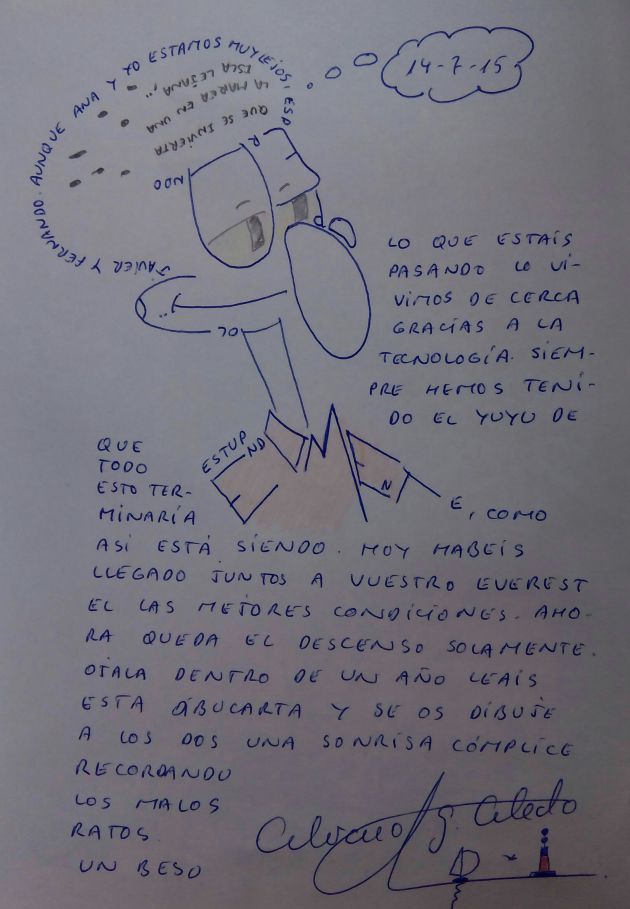 14-7-15
JAVIER Y FERNANDO. AUNQUE ANA Y YO ESTAMOS MUY LEJOS, ESP
R
NDO
QUE SE INVIERTA
LA MAREA EN UNA
LEJANA,
OL
LO QUE ESTAÍS
PASANDO LO VI-
VIMOS DE CERCA
GRACIAS A LA
TECNOLOGÍA. SIEM-
PRE HEMOS TENI-
DO EL YUYU DE
QUE
TODO
ESTO TER-
MINARÍA
ESTUP
ND
N
E, COMO
ASI ESTÁ SIENDO. HOY HABEIS
LLEGADO JUNTOS A VUESTRO EVEREST
EL LAS MEJORES CONDICIONES. AHO-
RA QUEDA EL DESCENSO SOLAMENTE.
OJALA DENTRO DE UN AÑO LEAIS
ESTA DIBUCARTA Y SE OS DIBUJE
A LOS DOS UNA SONRISA CÓMPLICE
RECORDANDO
LOS MALOS
RATOS.
UN BESO
Alvaro G. Aledo